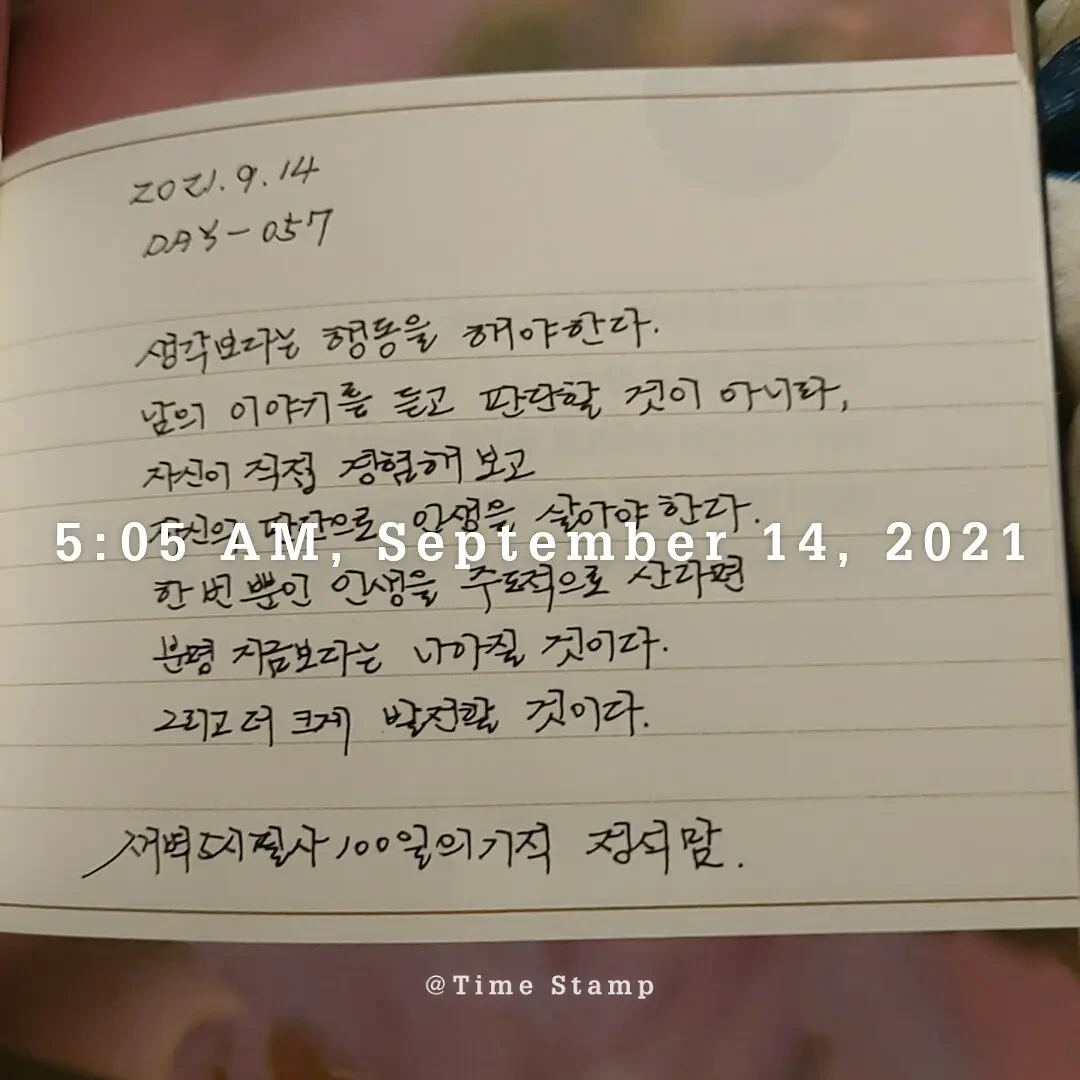 2021.9.14
DAY-057
생각보다는 행동을 해야한다.
남의 이야기를 듣고 판단할 것이 아니라,
자신이 직접 경험해 보고
자신의 판단으로 인생을 살아야 한다.
5:05 AM, September 14, 2021
한 번 뿐인 인생을 주도적으로 산다면
분명 지금보다는 나아질 것이다.
그리고 더 크게 발전할 것이다.
새벽5시필사100일의기적 정석맘.
@Time Stamp